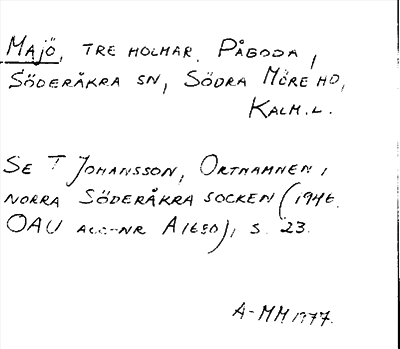 MAJÖ, TRE HOLMAR. PÅBODA,
SÖDERÅKRA SN, SÖDRA MÖRE HD,
KALM. L.
SE T JOHANSSON, ORTNAMNEN I
NORRA SÖDERÅKRA SOCKEN (1946.
OAU ACC-NR A1650), S. 23.
A-MM 1977.